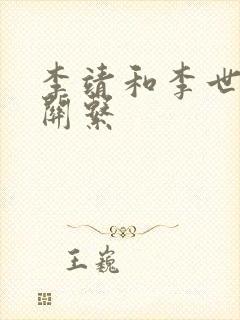 李靖和李世
關繫
王巍